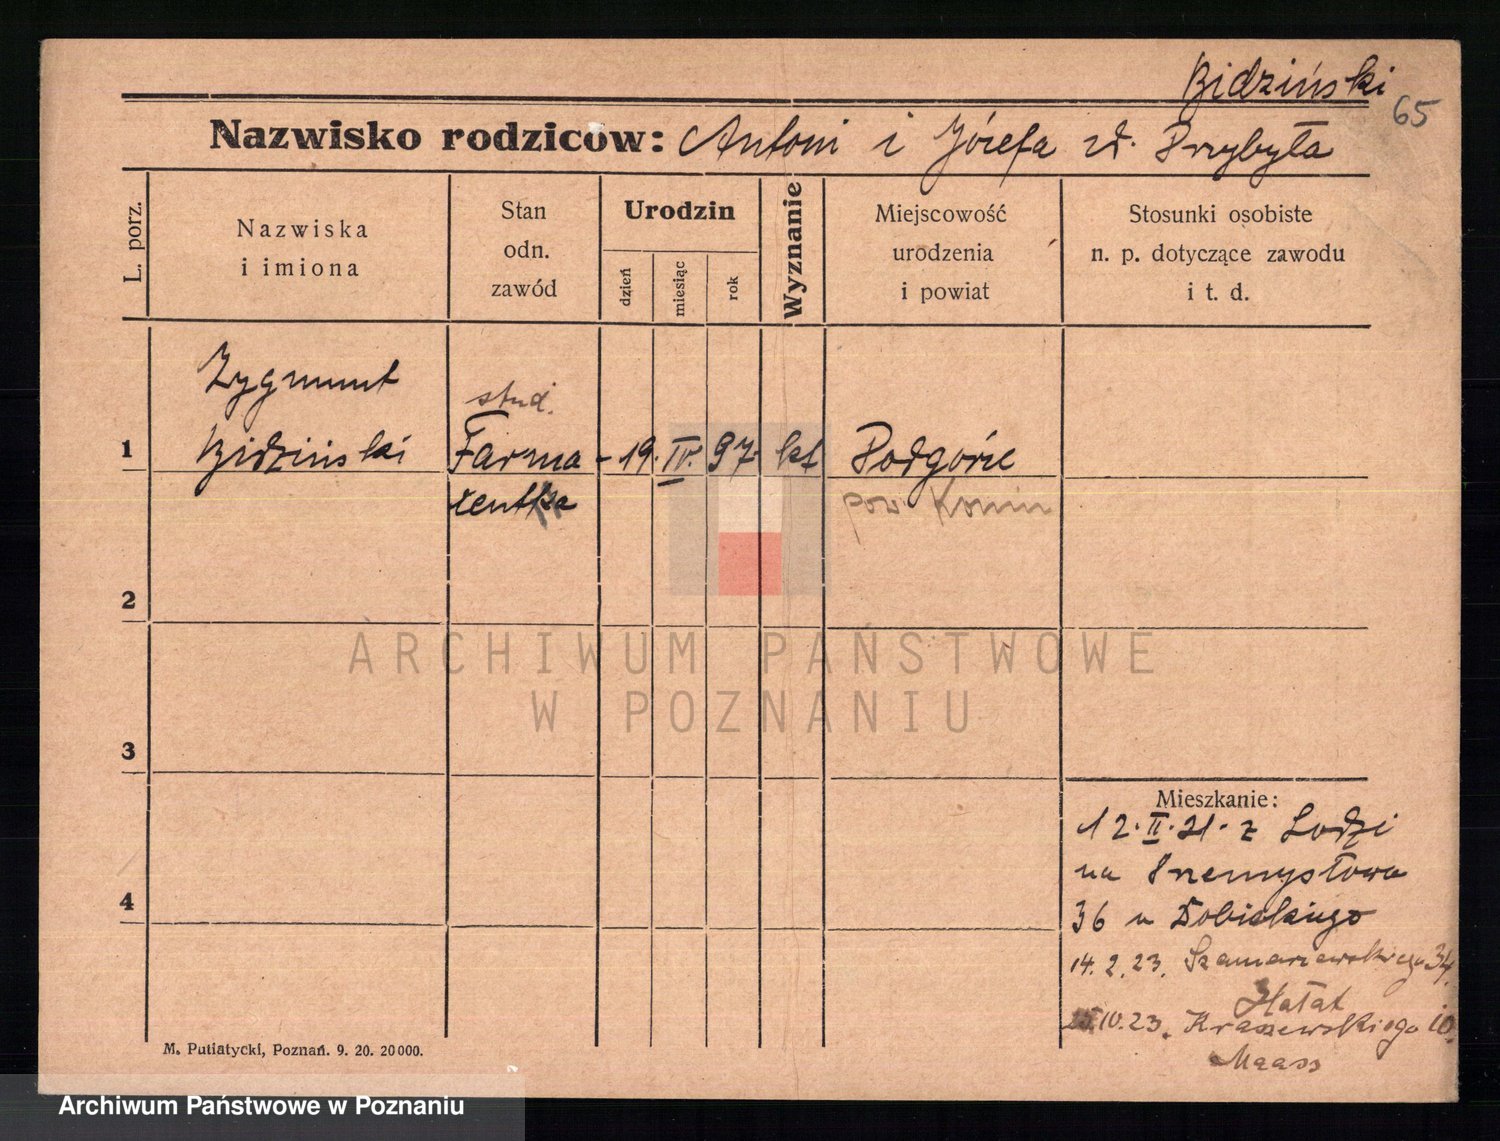 Bidziński
65
Nazwisko rodziców: Antoni i Józefa z d. Przybyła
L. porz.
Nazwiska
i imiona
Stan
odn.
zawód
Urodzin
dzień
miesiąc
rok
Wyznanie
Miejscowość
urodzenia
i powiat
Stosunki osobiste
n. p. dotyczące zawodu
i t. d.
Zygmunt
stud.
1 Bidziński Farma- 19. IV. 97. kt Podgórze
pow. Konin
2
3
4
Mieszkanie:
12. II. 21. z Łodzi
na Przemysłowa
36 u
14. 2. 23. Szamarzewskiego 34.
Hałat
10. 23. Kraszewskiego 10.
Maass
M. Putiatycki, Poznań. 9. 20. 20000.
ARCHIWUM PAŃSTWOWE
W POZNANIU
Archiwum Państwowe w Poznaniu